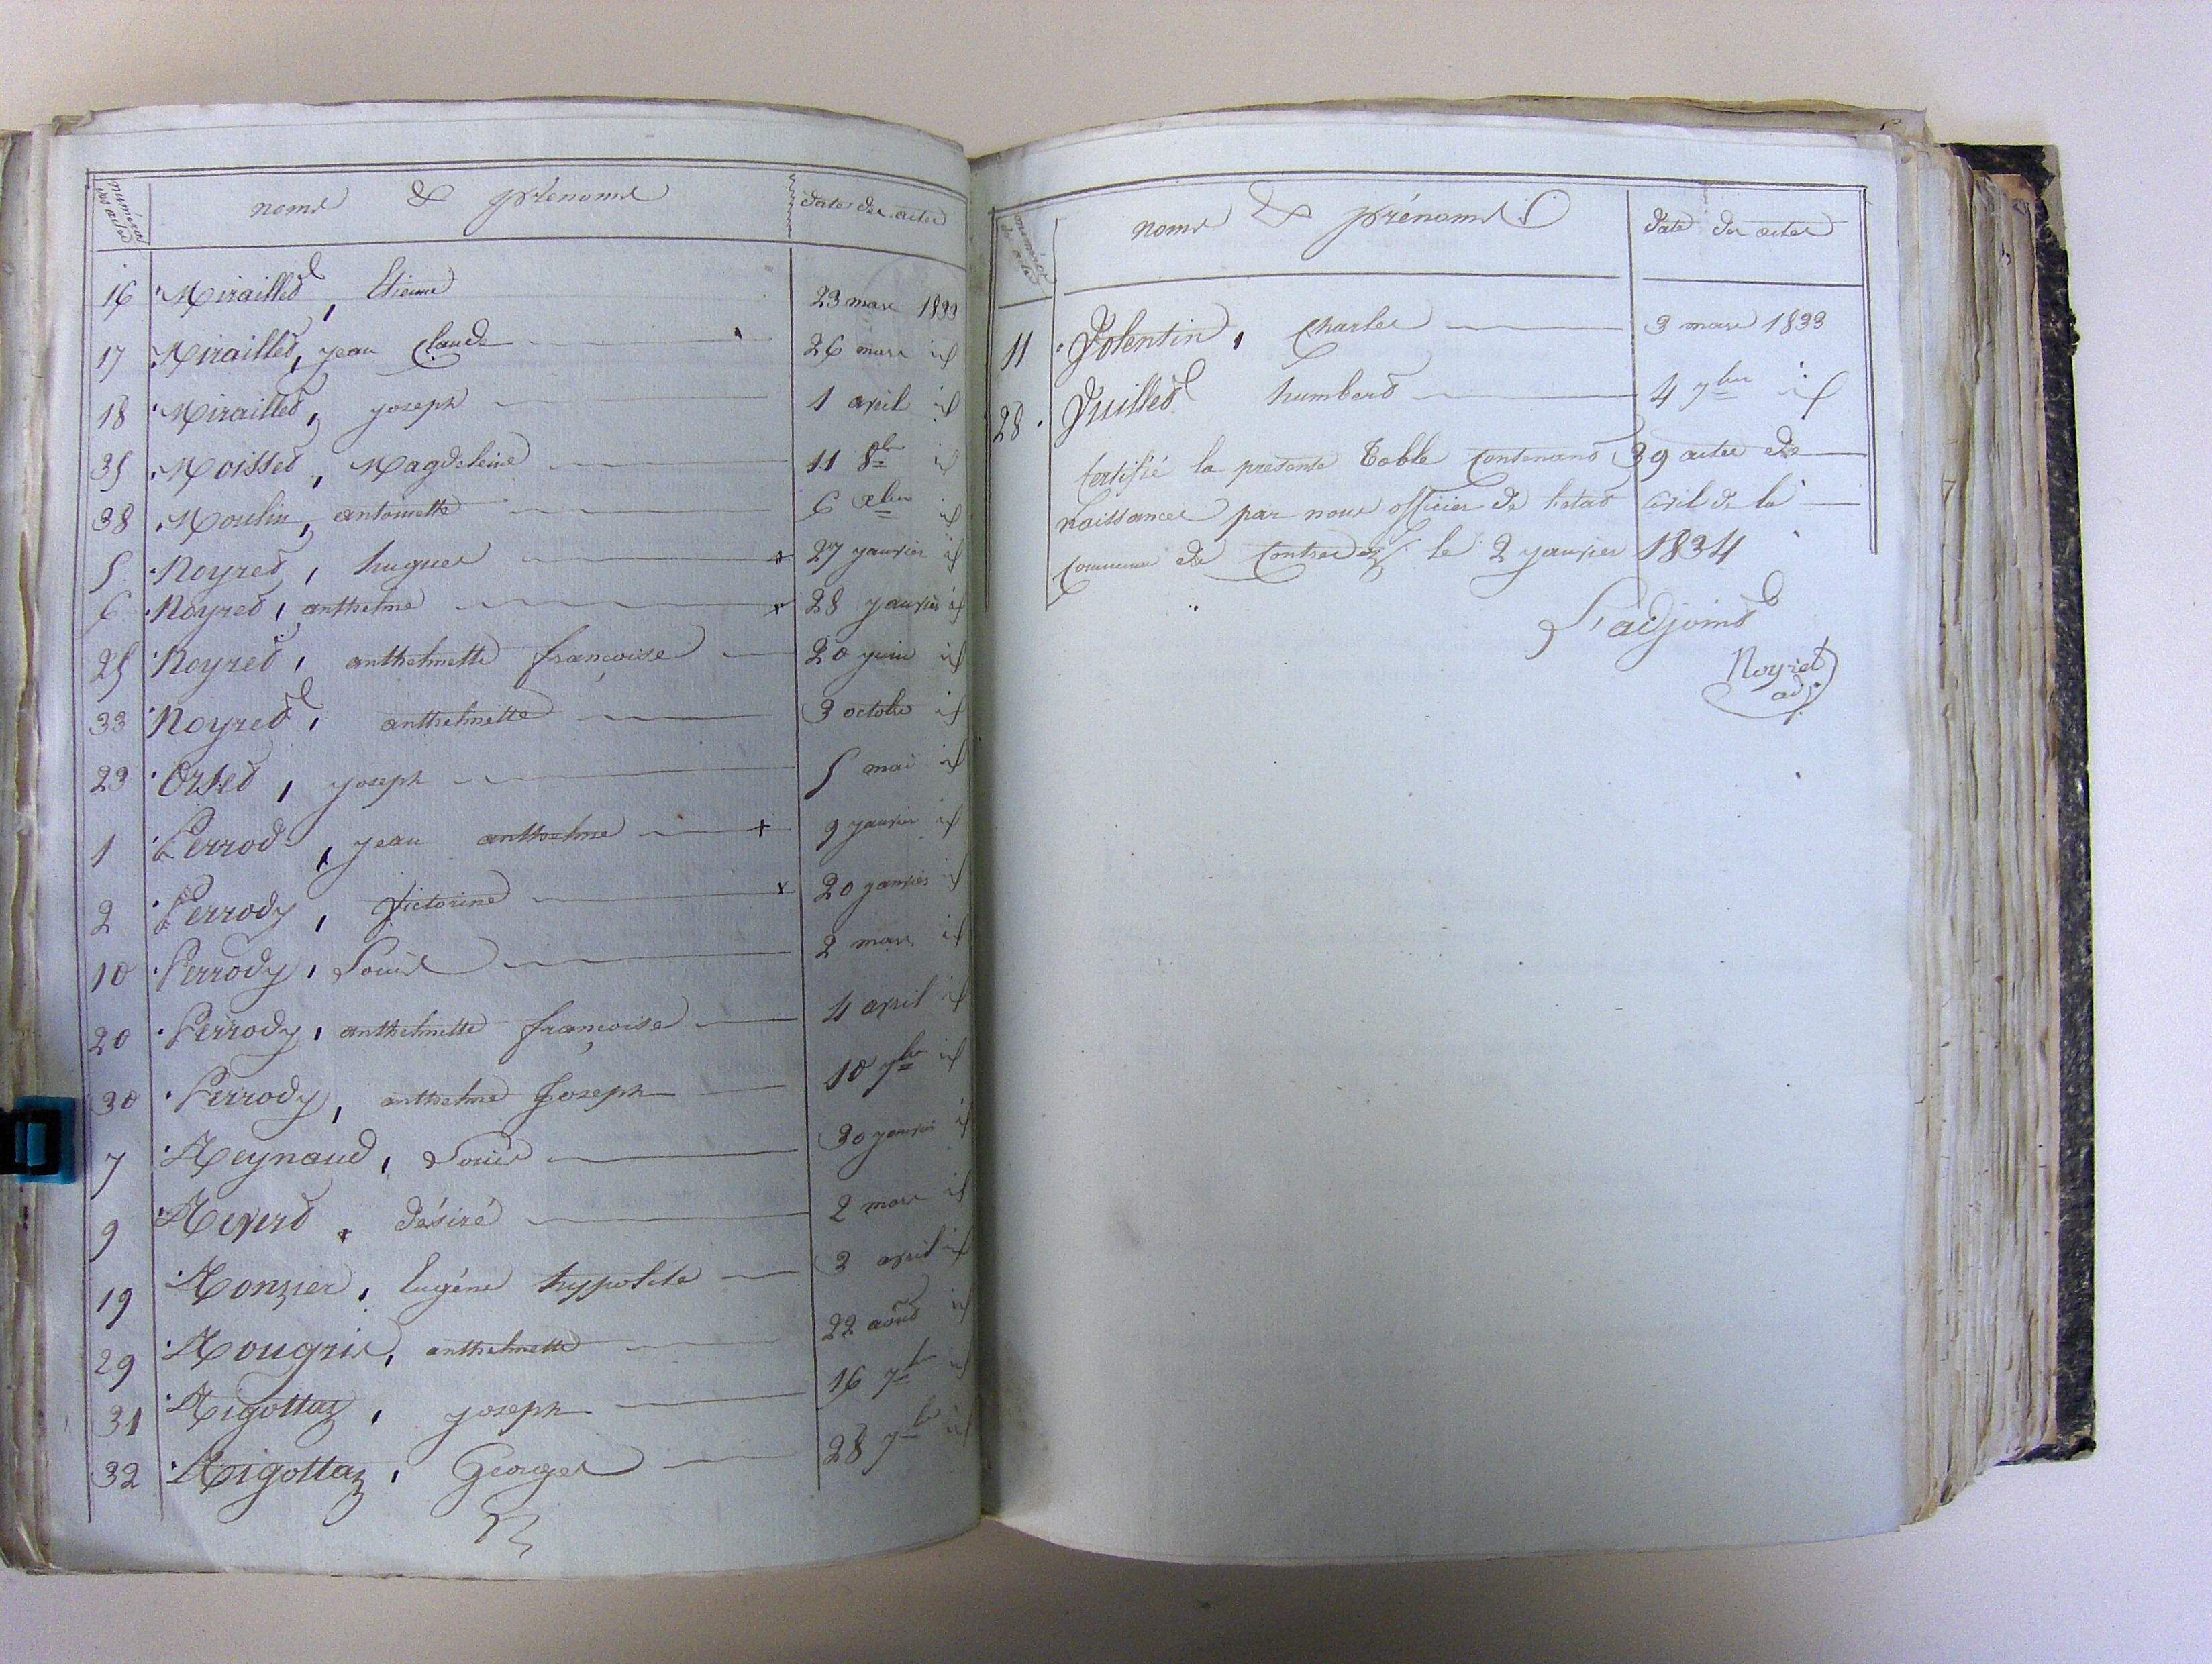 numéros des actes noms & prénoms date des actes
16 Miraillet, Etienne 23 mars 1833
17 Miraillet, jean Claude 26 mars id
18 Miraillet, joseph 1 avril id
35 Moisset, Magdeleine 11 8bre id
38 Moulin, antoinette 6 xbre id
5 Noyret, hugues 27 janvier id
6 Noyret, anthelme 28 janvier id
25 Noyret, anthelmette françoise 20 juin id
33 Noyret, anthelmette 3 octobre id
23 Orset, joseph 5 mai id
1 Perrod, jean anthelme 9 janvier id
2 Perrody, victorine 20 janvier id
10 Perrody, Louis 2 mars id
20 Perrody, anthelmette françoise 4 avril id
30 Perrody, anthelme Joseph 10 7bre id
7 Reynaud, Louis 30 janvier id
9 Revert, désiré 2 mars id
19 Ronzier, Eugène hyppolite 3 avril id
29 Rougris, anthelmette 22 août id
31 Rigottaz, joseph 16 7bre id
32 Rigottaz, Georges 28 7bre id
numéros des actes noms & prénoms date des actes
11 Volentin, Charles 3 mars 1833
28 Vuillet humbert 4 7bre id
Certifié la présente Table Contenant 39 actes de
Naissances par nous officier de l'etat Civil de la
Commune de le 2 janvier 1834
L'adjoint
Noyret
adj.